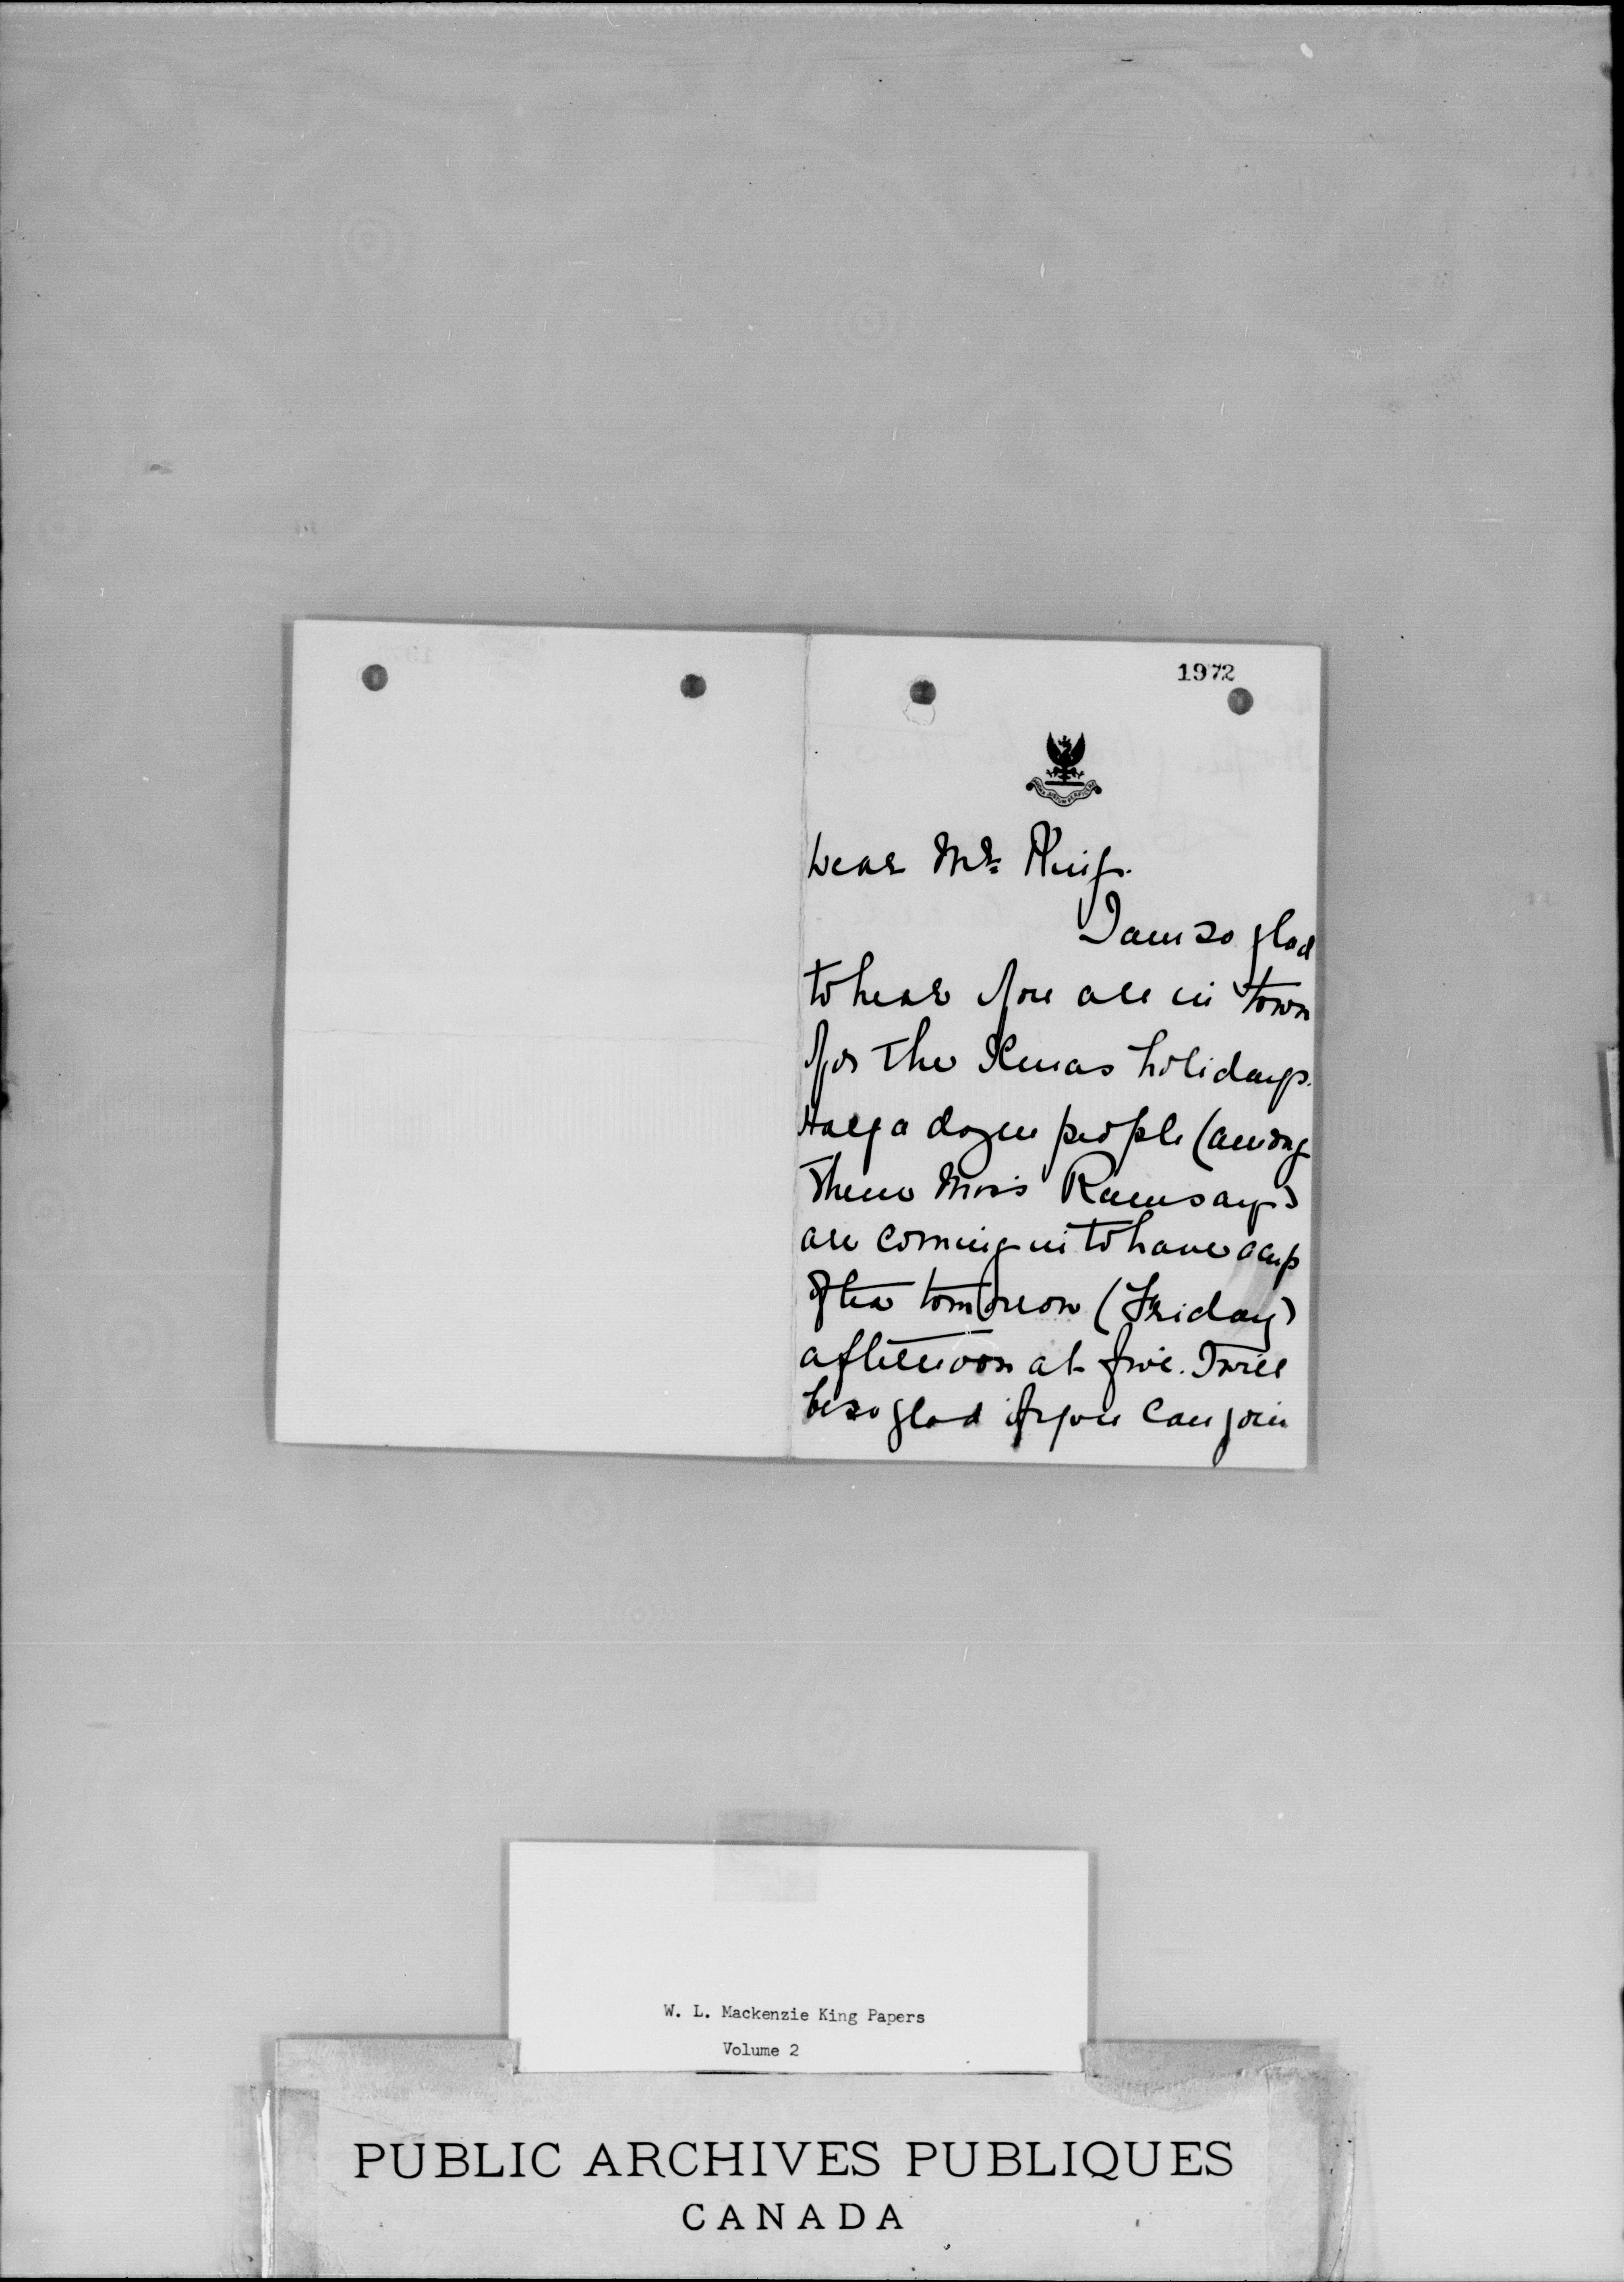 1972
Dear Mr. King.
I am so glad
to hear you are in town
for the Xmas holidays.
Half a dozen people (among
them Miss Ramsay)
are coming in to have a cup
of tea tomorrow (Friday)
afternoon at five. I will
be so glad if you can join
W. L. Mackenzie King Papers
Volume 2
PUBLIC ARCHIVES PUBLIQUES
CANADA